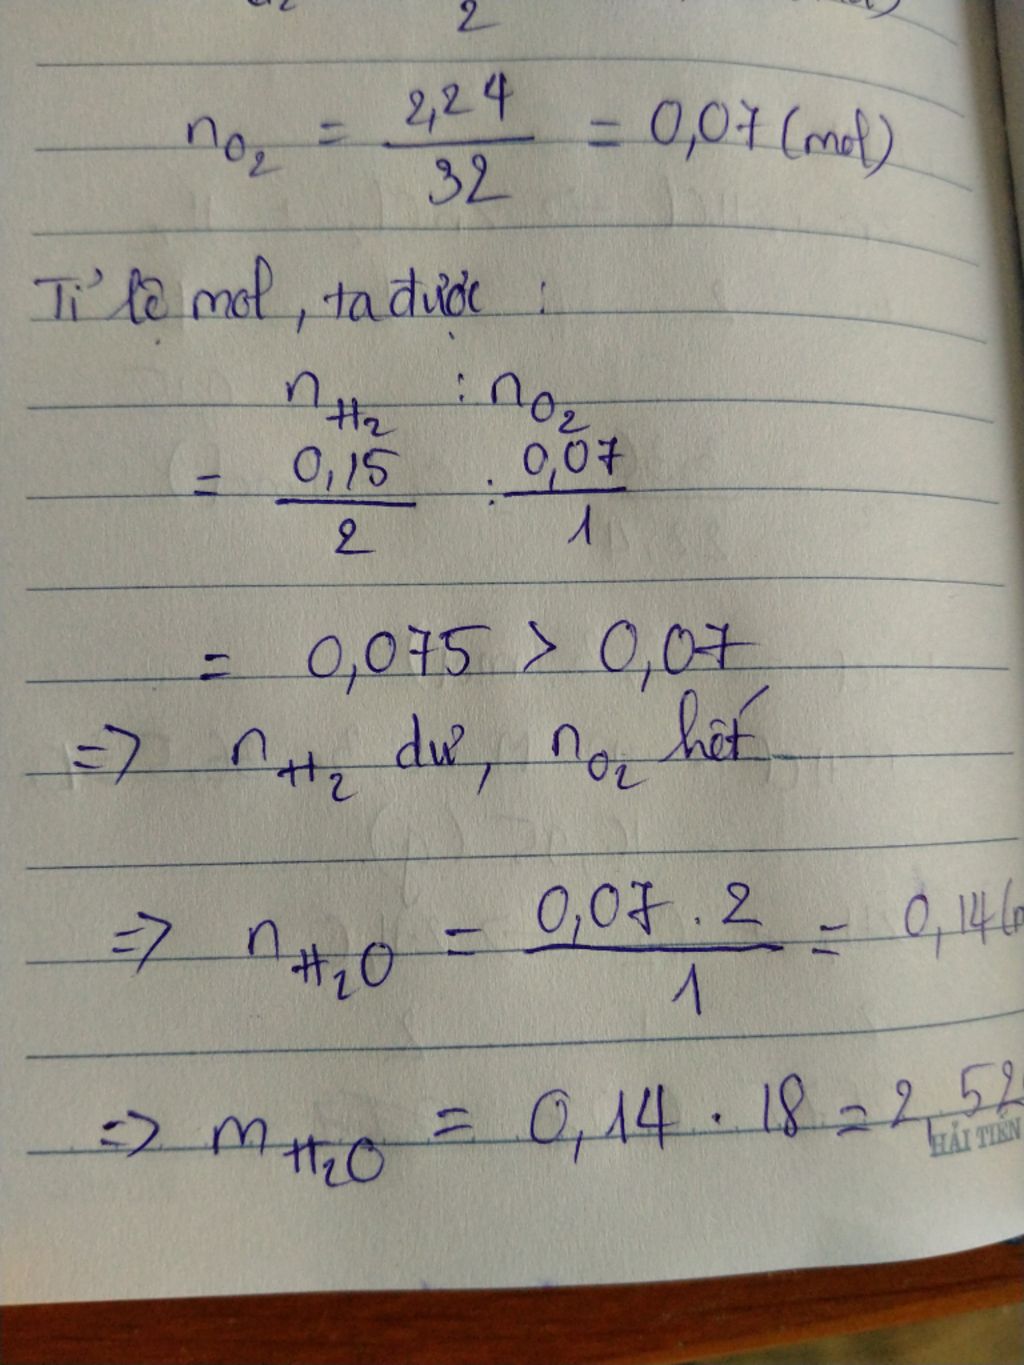 2
n O₂ = 2,24 / 32 = 0,07 (mol)
Tỉ lệ mol, ta được :
n H₂ : n O₂
= 0,15 / 2 : 0,07 / 1
= 0,075 > 0,07
=> n H₂ dư, n O₂ hết
=> n H₂O = 0,07 . 2 / 1 = 0,14 (m
=> m H₂O = 0,14 . 18 = 2,52
HẢI TIẾN